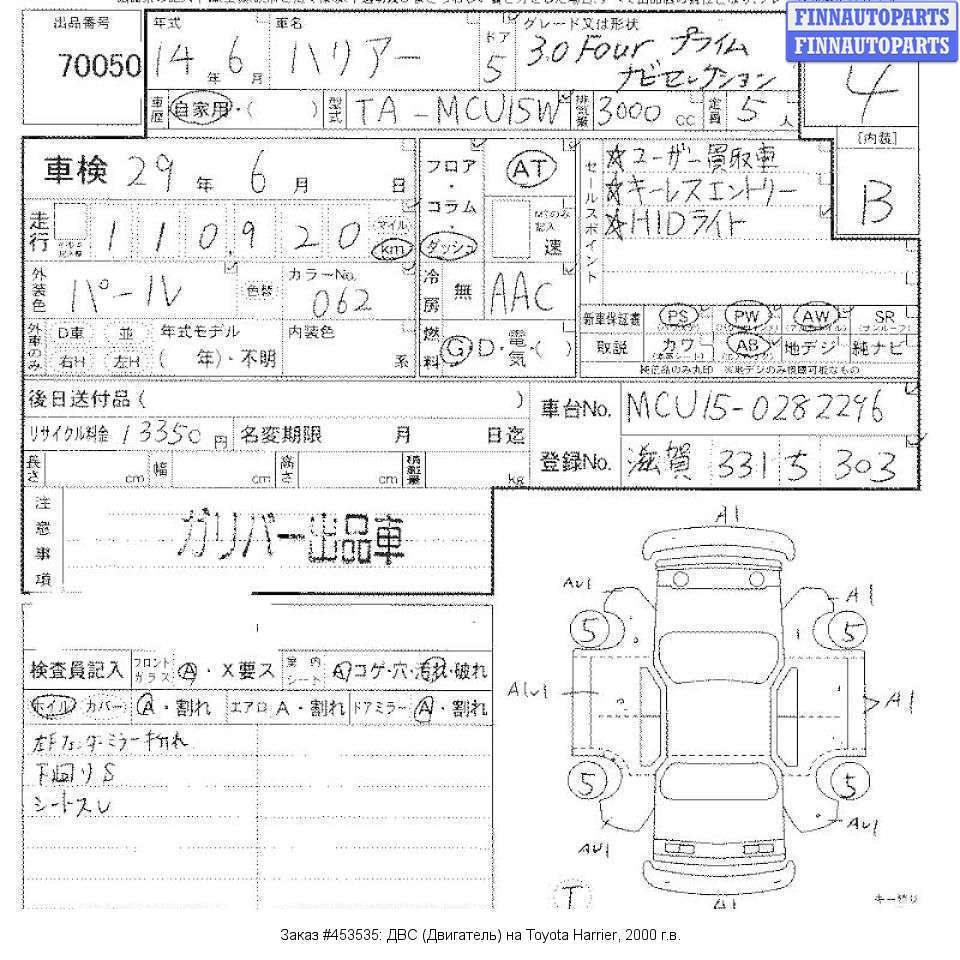 FINNAUTOPARTS
FINNAUTOPARTS
出品番号 年式 車名 ドア グレード又は形状
70050 14年 6月 ハリアー 5 3.0 Four プライム
ナビセレクション 4
車歴 自家用・( ) 型式 TA-MCU15W 排気量 3000 CC 定員 5人
[内装]
B
車検 29年 6月 日 フロア・コラム・ダッシュ AT
セールスポイント ☆ユーザー買取車
☆キーレスエントリー
☆HIDライト
走行 110,920 マイル km MTのみ記入 速
外装色 パール 色替 カラーNo. 062 冷房 無 AAC
新車保証書 PS PW AW SR
(サンルーフ)
取説 カワ AB 地デジ 純ナビ
純正品のみ丸印 ※地デジのみ視聴可能なもの
外車のみ D車 並 年式モデル 内装色
右H 左H ( 年)・不明 系
燃料 G・D・電気・( )
後日送付品 ( ) 車台No. MCU15-0282296
リサイクル料金 13350円 名変期限 月 日迄
登録No. 滋賀 331 す 303
長さ cm 幅 cm 高さ cm 積載量 kg
注意事項 ガリバー出品車
検査員記入 フロントガラス A・X要ス 室内シート A コゲ・穴・汚れ・破れ
ホイル カバー A・割れ エアロ A・割れ ドアミラー A・割れ
左Fフェンダーミラー折れ
下回りS
シートスレ
A1
AU1 A1
5 5
A1U1 A1
5 5
AU1 AU1
T A1
キー残り
Заказ #453535: ДВС (Двигатель) на Toyota Harrier, 2000 г.в.